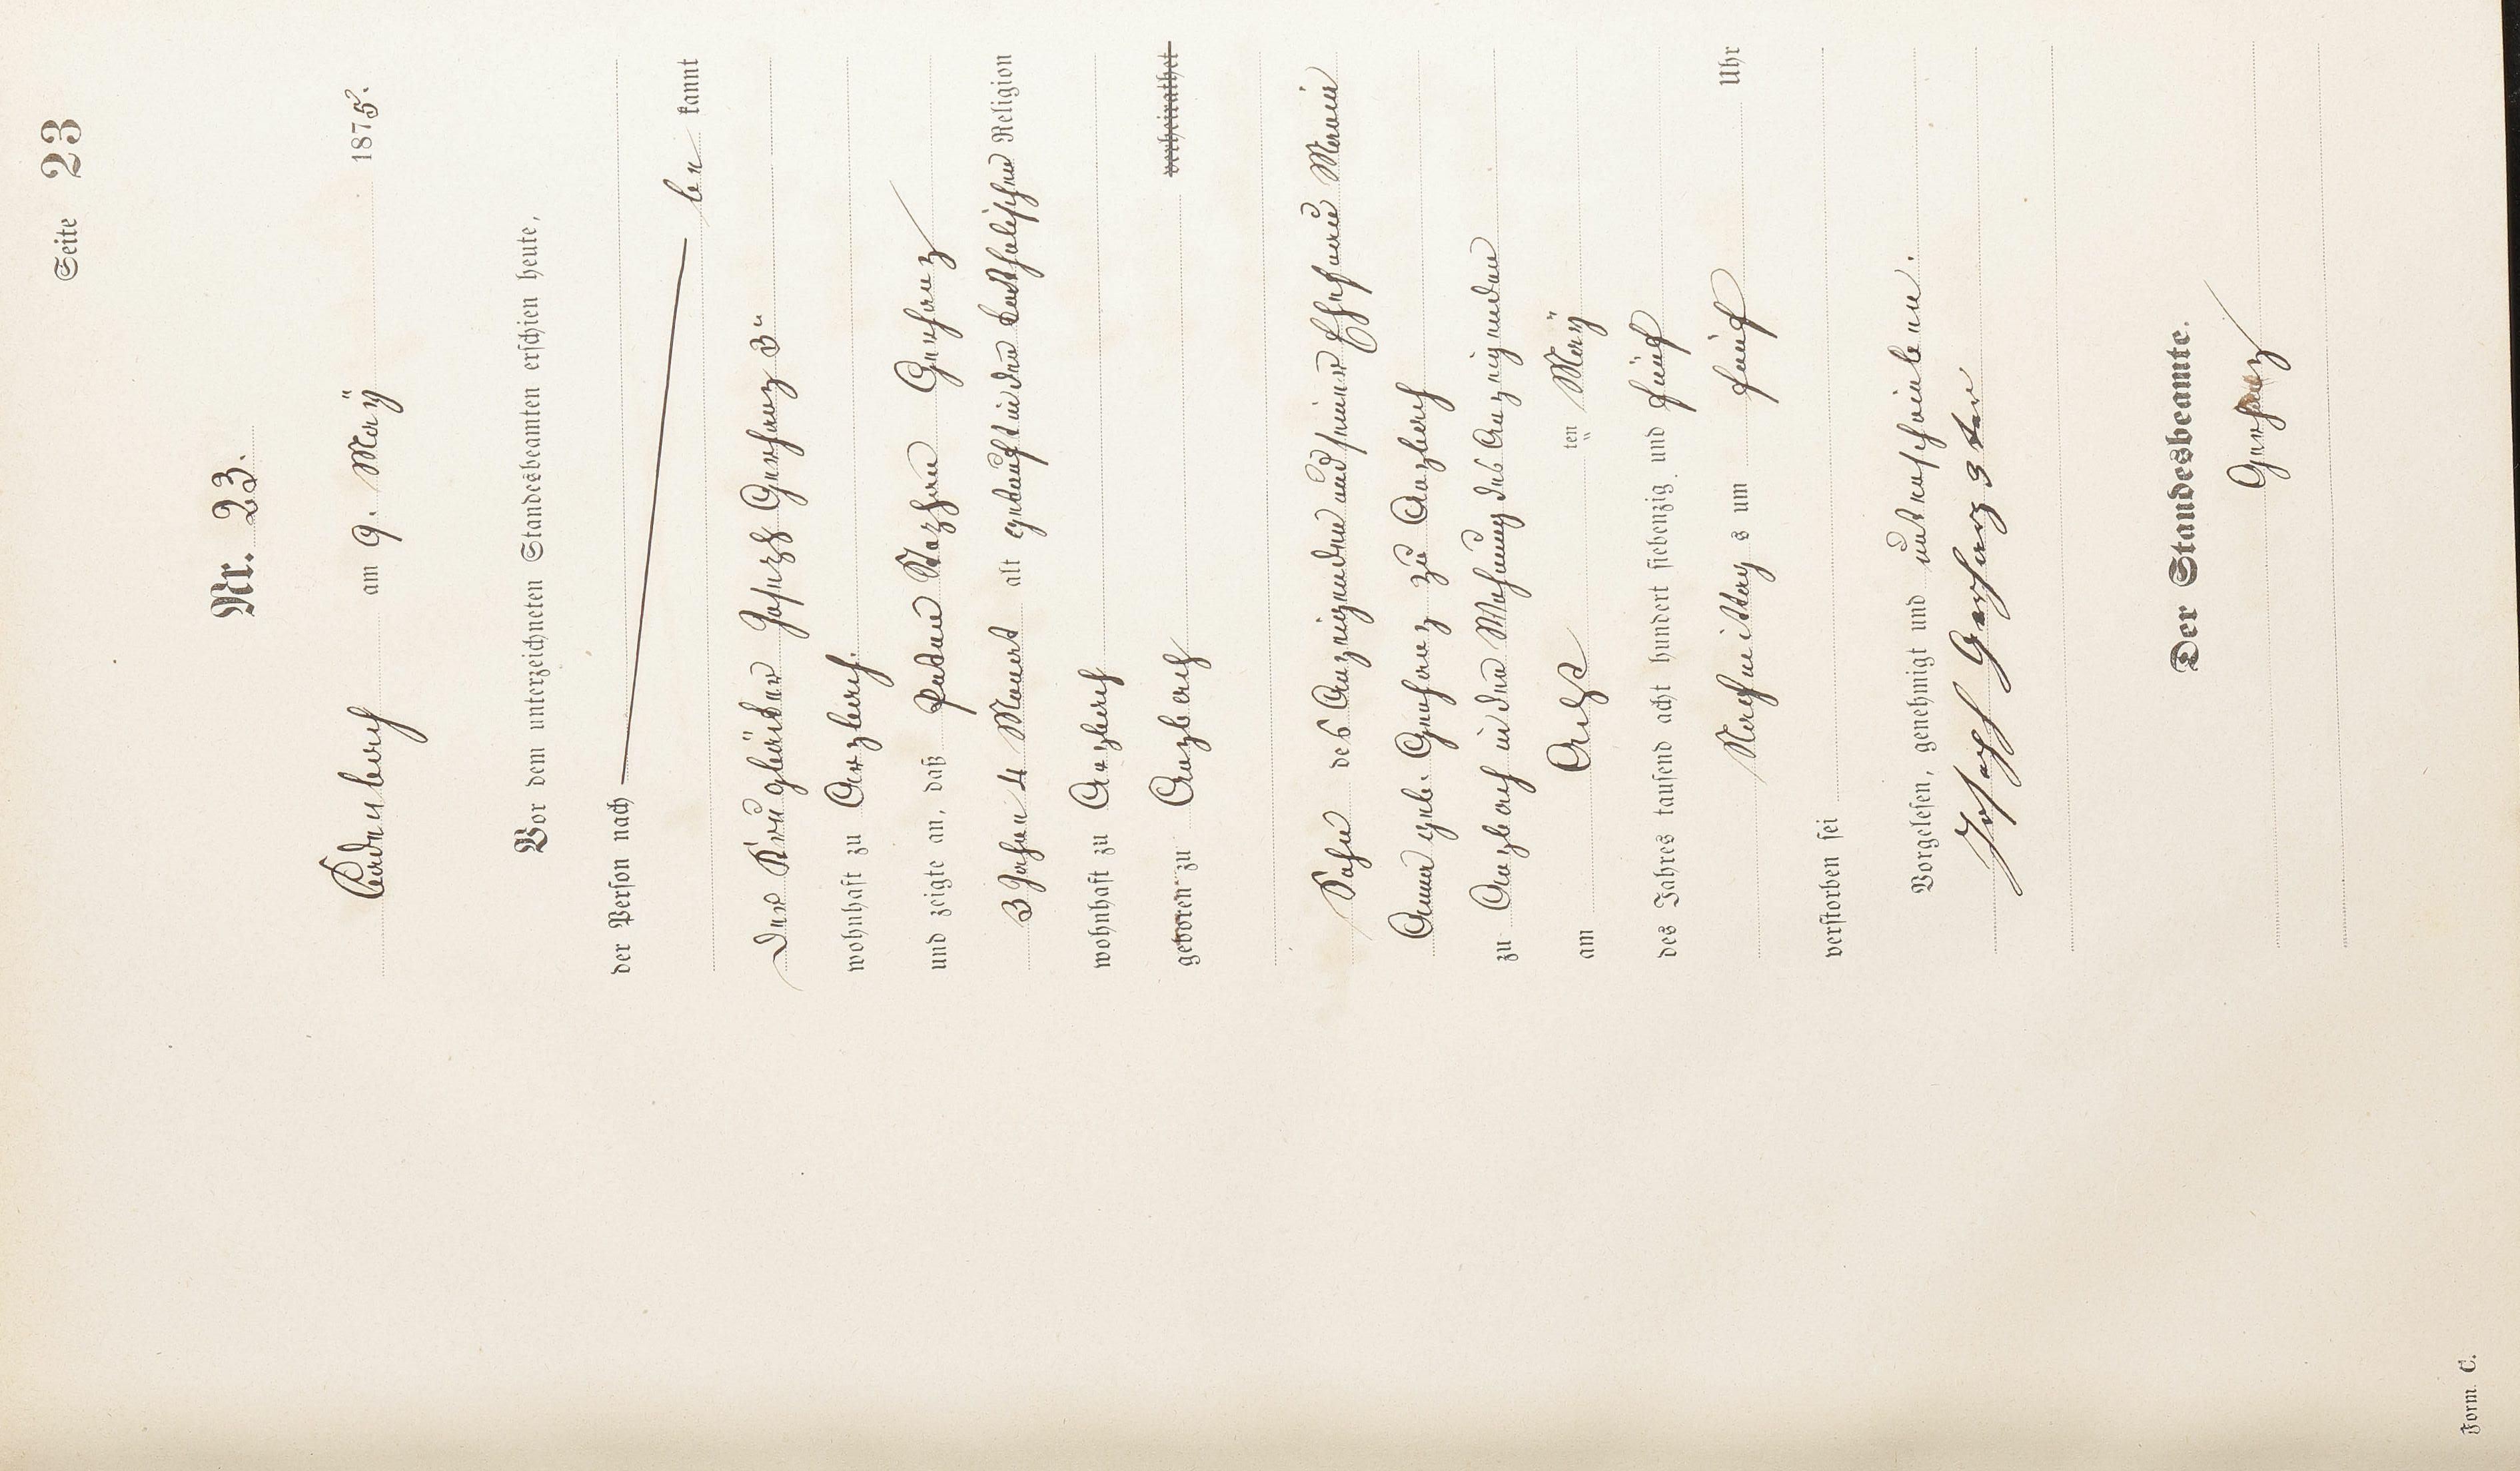 Seite 23
Nr. 23.
Cadenbach am 9. Maÿ 1875.
Vor dem unterzeichneten Standesbeamten erschien heute,
der Person nach
be kannt
Der Krugbäcker Joseph Gerharz 3"
wohnhaft zu Arzbach
und zeigte an, daß Peter Gerharz
3 Jahre 4 Monat alt getauft in der katholischen Religion
wohnhaft zu Arzbach
geboren zu Arzbach verheirathet
Sohn des Anzeigenden und seiner Ehefrau Maria
Anna geb. Gerharz zu Arzbach
zu Arzbach in der Wohnung des Anzeigenden
am Acht ten Maÿ
des Jahres tausend acht hundert siebenzig und fünf
Nachmittag s um fünf Uhr
verstorben sei
Vorgelesen, genehmigt und unterschrieben.
Joseph Gerharz 3ter
Der Standesbeamte.
Gerharz
Form. C.